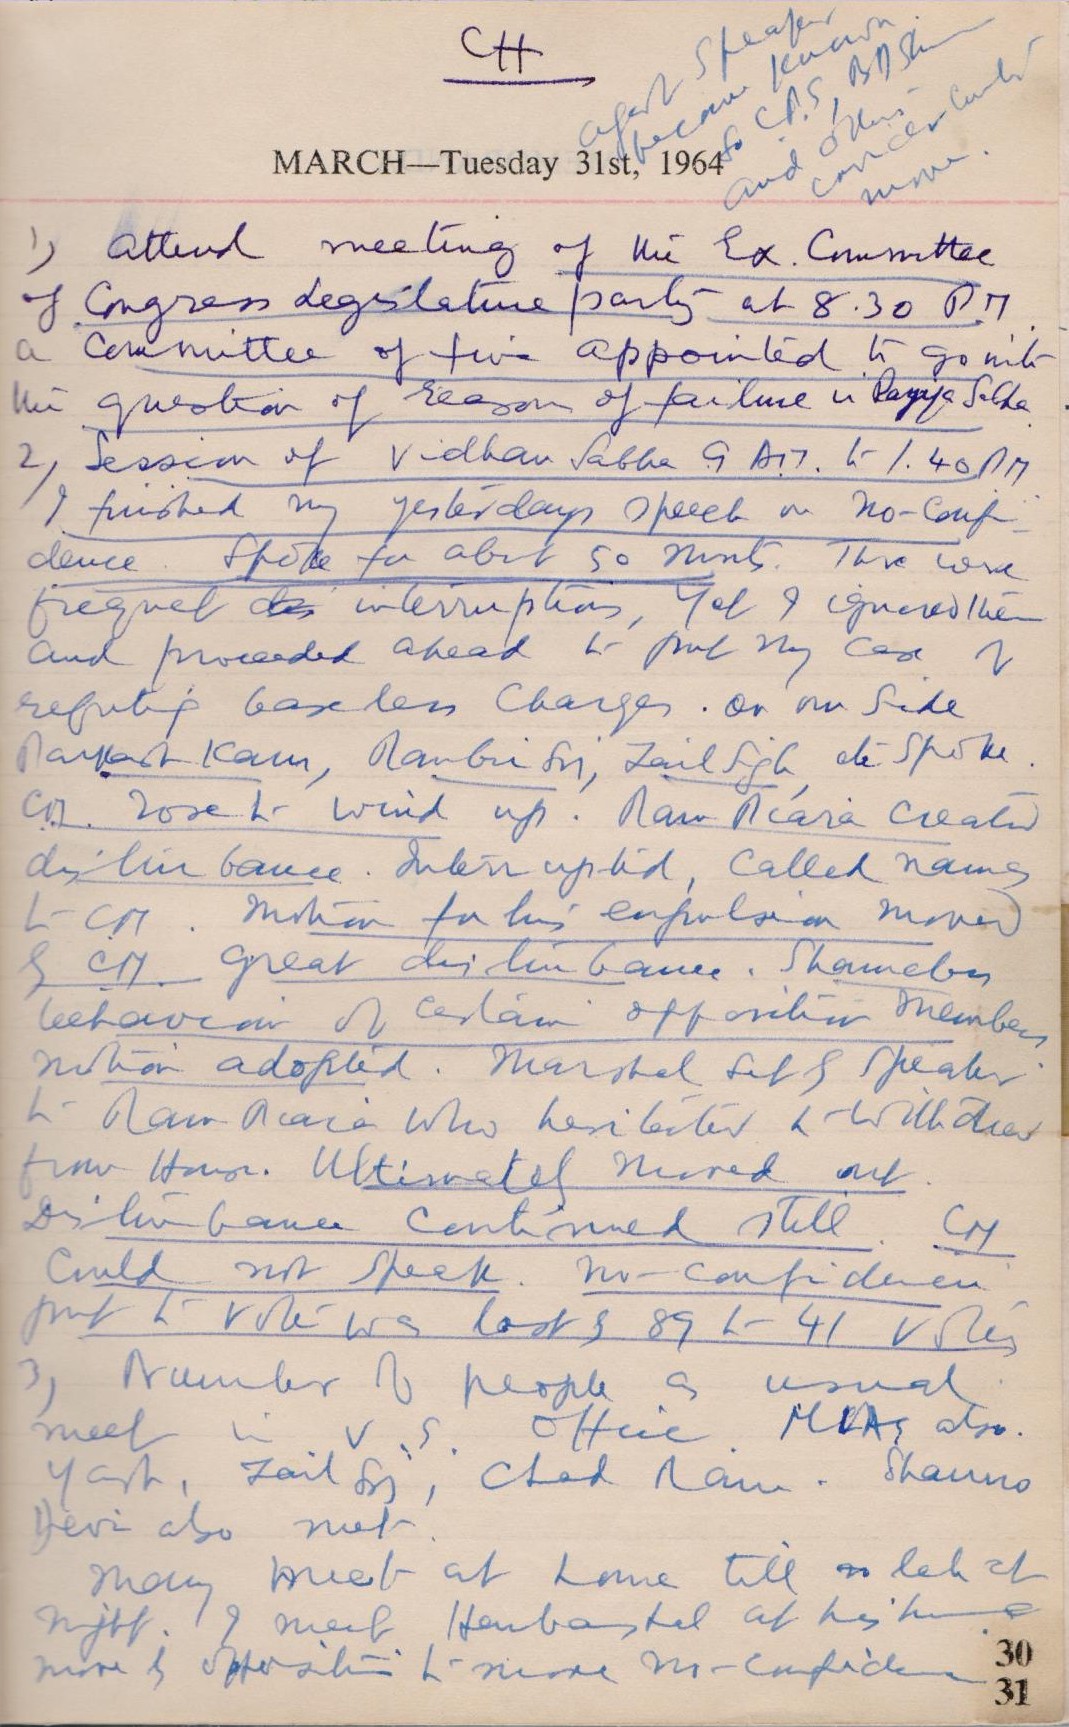 CH
against Speaker
become known
so C.P.S,
and others
consider
move.
MARCH—Tuesday 31st, 1964
1) Attend meeting of the Ex. Committee
of Congress Legislature party at 8.30 P.M.
a Committee of five appointed to go into
the question of reason of failure in Rajya Sabha
2) Session of Vidhan Sabha 9 A.M. to 1.40 PM
I finished my yesterdays speech on No-Confi-
dence. Spoke for about 50 Mints. There were
frequent interruptions, Yet I ignored them
and proceeded ahead to put my case of
refuting baseless Charges. On our Side
Kaur, Rambir Sij, Zail Sigh, etc Spoke.
CM. rose to wind up. Ram Piara Created
disturbance. Interrupted, Called names
to CM. Motion for his expulsion moved
by CM. great disturbance. Shameless
behaviour of certain opposition Members
motion adopted. Marshal sent by Speaker
to Ram Piara who hesitated to withdraw
from House. Ultimately moved out.
Disturbance continued still. CM
Could not speak. No-confidence
put to vote was lost by 89 to 41 votes
3) Number of people as usual
meet in V.S. Office. MLAs also.
Yash, Zail Sij, Chad Ram. Shanno
Devi also met.
Many meet at home till late at
night. I meet Harbanslal at his
move by opposition to move no-confidence
30
31